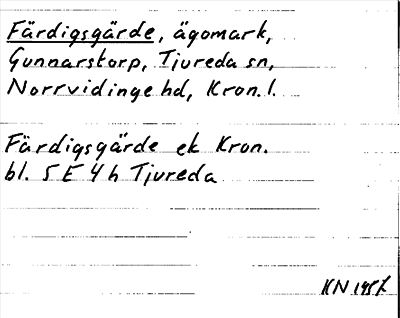 Färdigsgärde, ägomark,
Gunnarstorp, Tjureda sn,
Norrvidinge hd, Kron. l.
Färdigsgärde ek Kron.
bl. 5 E 4 h Tjureda
KN 1957